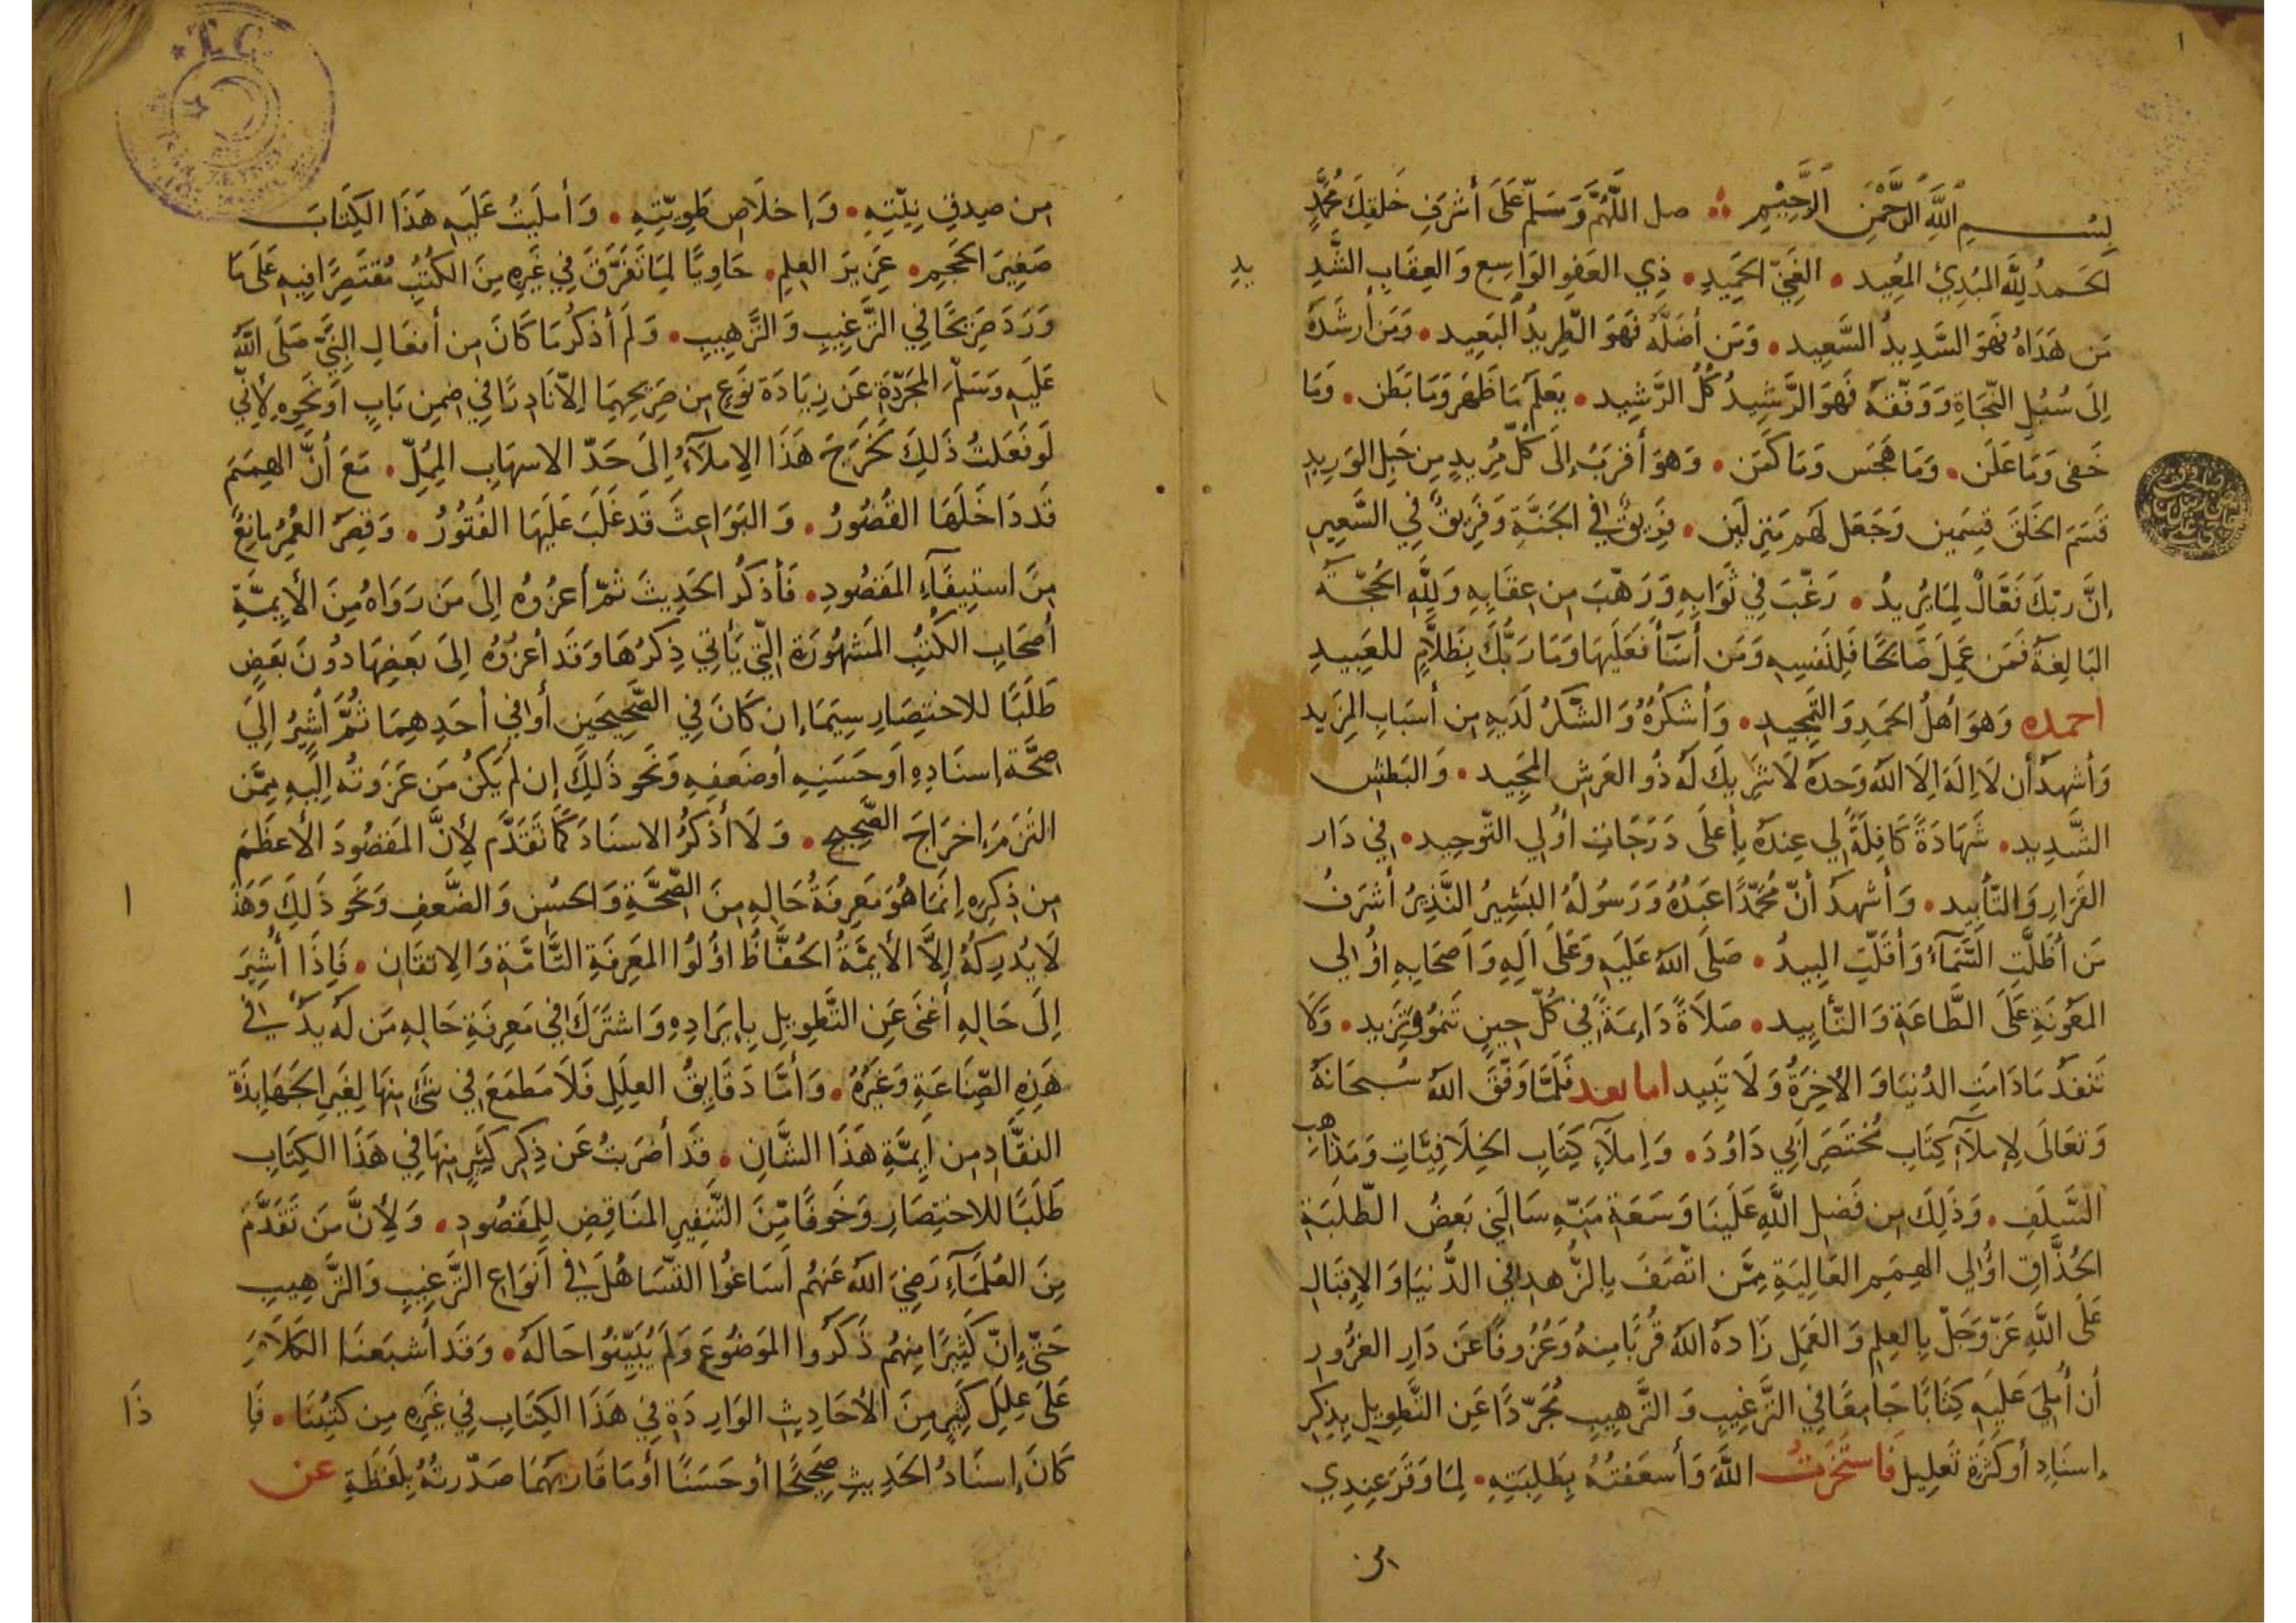 ١
بِسْمِ اللَّهِ الرَّحْمَنِ الرَّحِيمِ صل اللَّهُمَّ وَسَلِّمْ عَلَى أَشْرَفِ خَلقِكَ مُحَمَّدٍ
الحَمدُ لِلَّهِ المُبْدِئ المُعِيد • الغَنِيّ الحَمِيدِ • ذِي العَفوِ الوَاسِع وَالعِقَابِ الشَّدِ يدِ
مَن هَدَاهُ فَهوَ السَّدِيدُ السَّعِيد • وَمَن أضَلَّهُ فَهوَ الطَّرِيدُ البَعِيد • وَمَن أرشَدَهُ
إلَى سُبُلِ النَّجَاةِ وَوَفَّقَهُ فَهوَ الرَّشِيدُ كُلُّ الرَّشِيد • يَعلَمُ مَا ظَهَرَ وَمَا بَطَن • وَمَا
خَفى وَمَا عَلَن • وَمَا هَجَس وَمَا كَمَن • وَهوَ أقرَبُ إلَى كُلِّ مُرِيدٍ مِن حَبلِ الوَرِيدِ
قَسَمَ الخَلقَ قِسمَين وَجَعَل لَهم مَنزِلَين • فَرِيقٌ في الجَنَّةِ وَفَرِيقٌ فِي السَّعِيرِ
إنَّ رَبَّكَ فَعَّالٌ لِمَا يُرِيدُ • رَغَّبَ فِي ثَوَابِهِ وَرَهَّبَ مِن عِقَابِهِ وَلِلَّهِ الحُجَّةُ
البَالِغَةُ فَمَن عَمِلَ صَالِحًا فَلِنَفسِهِ وَمَن أسَآءَ فَعَلَيهَا وَمَا رَبُّكَ بِظَلَّامٍ للعَبِيدِ
احمده وَهوَ أهلُ الحَمدِ وَالتَّمجِيدِ • وَأشكُرُهُ وَالشُّكرُ لَدَيهِ مِن أسبَابِ المَزِيد
وَأشهدُ أن لَا إلَهَ إلَّا اللهُ وَحدَهُ لَا شَرِيكَ لَهُ ذُو العَرشِ المَجِيد • وَالبَطشِ
الشَّدِيد • شَهَادَةً كَافِلَةً لِي عِندَهُ بِأعلَى دَرَجَاتِ أُولِي التَّوحِيد • فِي دَار
القَرَارِ وَالتَّأبِيد • وَأشهدُ أنَّ مُحَمَّدًا عَبدُهُ وَرَسُولُهُ البَشِيرُ النَّذِيرُ أشرَفُ
مَن أظَلَّتِ السَّمَآءُ وَأقَلَّتِ البِيدُ • صَلَّى اللهُ عَلَيهِ وَعَلَى آلِهِ وَأصحَابِهِ أُولي
المَعُونَةِ عَلَى الطَّاعَةِ وَالتَّأيِيد • صَلَاةً دَائِمَةً فِي كُلِّ حِينٍ تَنمُو وَتَزِيد • وَلَا
تَنفَدُ مَا دَامَتِ الدُّنيَا وَالآخِرَةُ وَلَا تَبِيد اما بعد فَلَمَّا وَفَّقَ اللهُ سُبحَانَهُ
وَتعَالَى لِإملَآءِ كِتَابِ مُختَصَرِ أبِي دَاوُدَ • وَإملَآءِ كِتَابِ الخِلَافِيَّاتِ وَمَذَاهِبِ
السَّلَفِ • وَذَلِكَ مِن فَضلِ اللَّهِ عَلَينَا وَسَعَةِ مَنِّهِ سَألَنِي بَعضُ الطَّلَبَةِ
الحُذَّاقِ أُولي الهِمَمِ العَالِيَةِ مِمَّن اتَّصَفَ بِالزُّهدِ في الدُّنيَا وَالإقبَالِ
عَلَى اللَّهِ عَزَّ وَجَلَّ بِالعِلمِ وَالعَمَلِ زَادَهُ اللهُ قُربًا مِنهُ وَعُزُوفًا عَن دَارِ الغُرُورِ
أن أُملِيَ عَلَيهِ كِتَابًا جَامِعًا فِي التَّرغِيبِ وَالتَّرهِيبِ مُجَرَّدًا عَنِ التَّطوِيلِ بِذِكرِ
إسنَادٍ أو كَثرَةِ تَعلِيل فَاستَخَرتُ اللَّهَ وَأسعَفتُهُ بِطَلِبَتِهِ • لِمَا وَقَرَ عِندِي
من
مِن صِدقِ نِيَّتِهِ • وَإخلَاصِ طَوِيَّتِهِ • وَأملَيتُ عَلَيهِ هَذَا الكِتَابَ
صَغِيرَ الحَجمِ • غَزِيرَ العِلمِ • حَاوِيًا لِمَا تَفَرَّقَ فِي غَيرِهِ مِنَ الكُتُبِ مُقتَصِرًا فِيهِ عَلَى مَا
وَرَدَ صَرِيحًا فِي التَّرغِيبِ وَالتَّرهِيبِ • وَلَم أذكُر مَا كَانَ مِن أفعَالِ النَّبِيِّ صَلَّى اللَّهُ
عَلَيهِ وَسَلَّمَ المُجَرَّدَةِ عَن زِيَادَة نَوعٍ مِن صَرِيحِهِمَا إلَّا نَادِرًا فِي ضِمنِ بَابٍ أو نَحوِهِ لِأنِّي
لَو فَعَلتُ ذَلِكَ لَخَرَجَ هَذَا الإملَآءُ إلَى حَدِّ الاسهَابِ المُمِلِّ • مَعَ أنَّ الهِمَمَ
قَد دَاخَلَهَا القُصُورُ • وَالبَوَاعِثَ قَد غَلَبَ عَلَيهَا الفُتُورُ • وَقِصَرُ العُمُرِ مَانِعٌ
مِنَ استِيفَآءِ المَقصُودِ • فَأذكُرُ الحَدِيثَ ثُمَّ أعزُوهُ إلَى مَن رَوَاهُ مِنَ الأَيِمَّةِ
أصحَابِ الكُتُبِ المَشهُورَةِ الَّتِي يَأتِي ذِكرُهَا وَقَد أعزُوهُ إلَى بَعضِهَا دُونَ بَعضٍ
طَلَبًا للاختِصَارِ سِيَّمَا إن كَانَ فِي الصَّحِيحَينِ أو في أحَدِهِمَا ثُمَّ أُشِيرُ إلَى
صِحَّةِ إسنَادِهِ أو حَسَنِهِ أو ضَعفِهِ وَنَحوِ ذَلِكَ إن لَم يَكُن مَن عَزَوتُه إلَيهِ مِمَّن
التَزَمَ إخرَاجَ الصَّحِيحِ • وَلَا أذكُرُ الاسنَادَ كَمَا تَقَدَّمَ لِأنَّ المَقصُودَ الأعظَمَ
مِن ذِكرِهِ إنَّمَا هُوَ مَعرِفَةُ حَالِهِ مِنَ الصِّحَّةِ وَالحُسنِ وَالضَّعفِ وَنَحوِ ذَلِكَ وَهَذَ ا
لَا يُدرِكُهُ إلَّا الأَيِمَّةُ الحُفَّاظُ أُولُوا المَعرِفَةِ التَّامَّةِ وَالإتقَان • فَإذَا أُشِيرَ
إلَى حَالِهِ أغنَى عَنِ التَّطوِيلِ بِإيرَادِهِ وَاشتَرَكَ في مَعرِفَةِ حَالِهِ مَن لَهُ يَدٌ في
هَذِهِ الصِّنَاعَةِ وَغَيرُهُ • وَأمَّا دَقَايِقُ العِلَلِ فَلَا مَطمَعَ فِي شَئٍ مِنهَا لِغَيرِ الجَهَابِذَةِ
النقَّادِ مِن أيِمَّةِ هَذَا الشَّانِ • قَد أضرَبتُ عَن ذِكرِ كَثِيرٍ مِنهَا فِي هَذَا الكِتَابِ
طَلَبًا للاختِصَارِ وَخَوفًا مِّنَ التَّنفِيرِ المُنَاقِضِ لِلمَقصُودِ • وَلِأنَّ مَن تَقَدَّمَ
مِنَ العُلَمَآءِ رَضِيَ اللهُ عَنهُم أسَاغُوا التَّسَاهُلَ في أنوَاعِ التَّرغِيبِ وَالتَّرهِيبِ
حَتَّى إنَّ كَثِيرًا مِنهُم ذَكَرُوا المَوضُوعَ وَلَم يُبَيِّنُوا حَالَهُ • وَقَد أشبَعنَا الكَلَامَ
عَلَى عِلَلِ كَثِيرٍ مِنَ الأحَادِيثِ الوَارِدَةِ فِي هَذَا الكِتَابِ فِي غَيرِهِ مِن كُتُبِنَا • فَإ ذَا
كَانَ إسنَادُ الحَدِيثِ صَحِيحًا أو حَسَنًا أو مَا قَارَبَهُمَا صَدَّرتُهُ بِلَفظَةِ عن